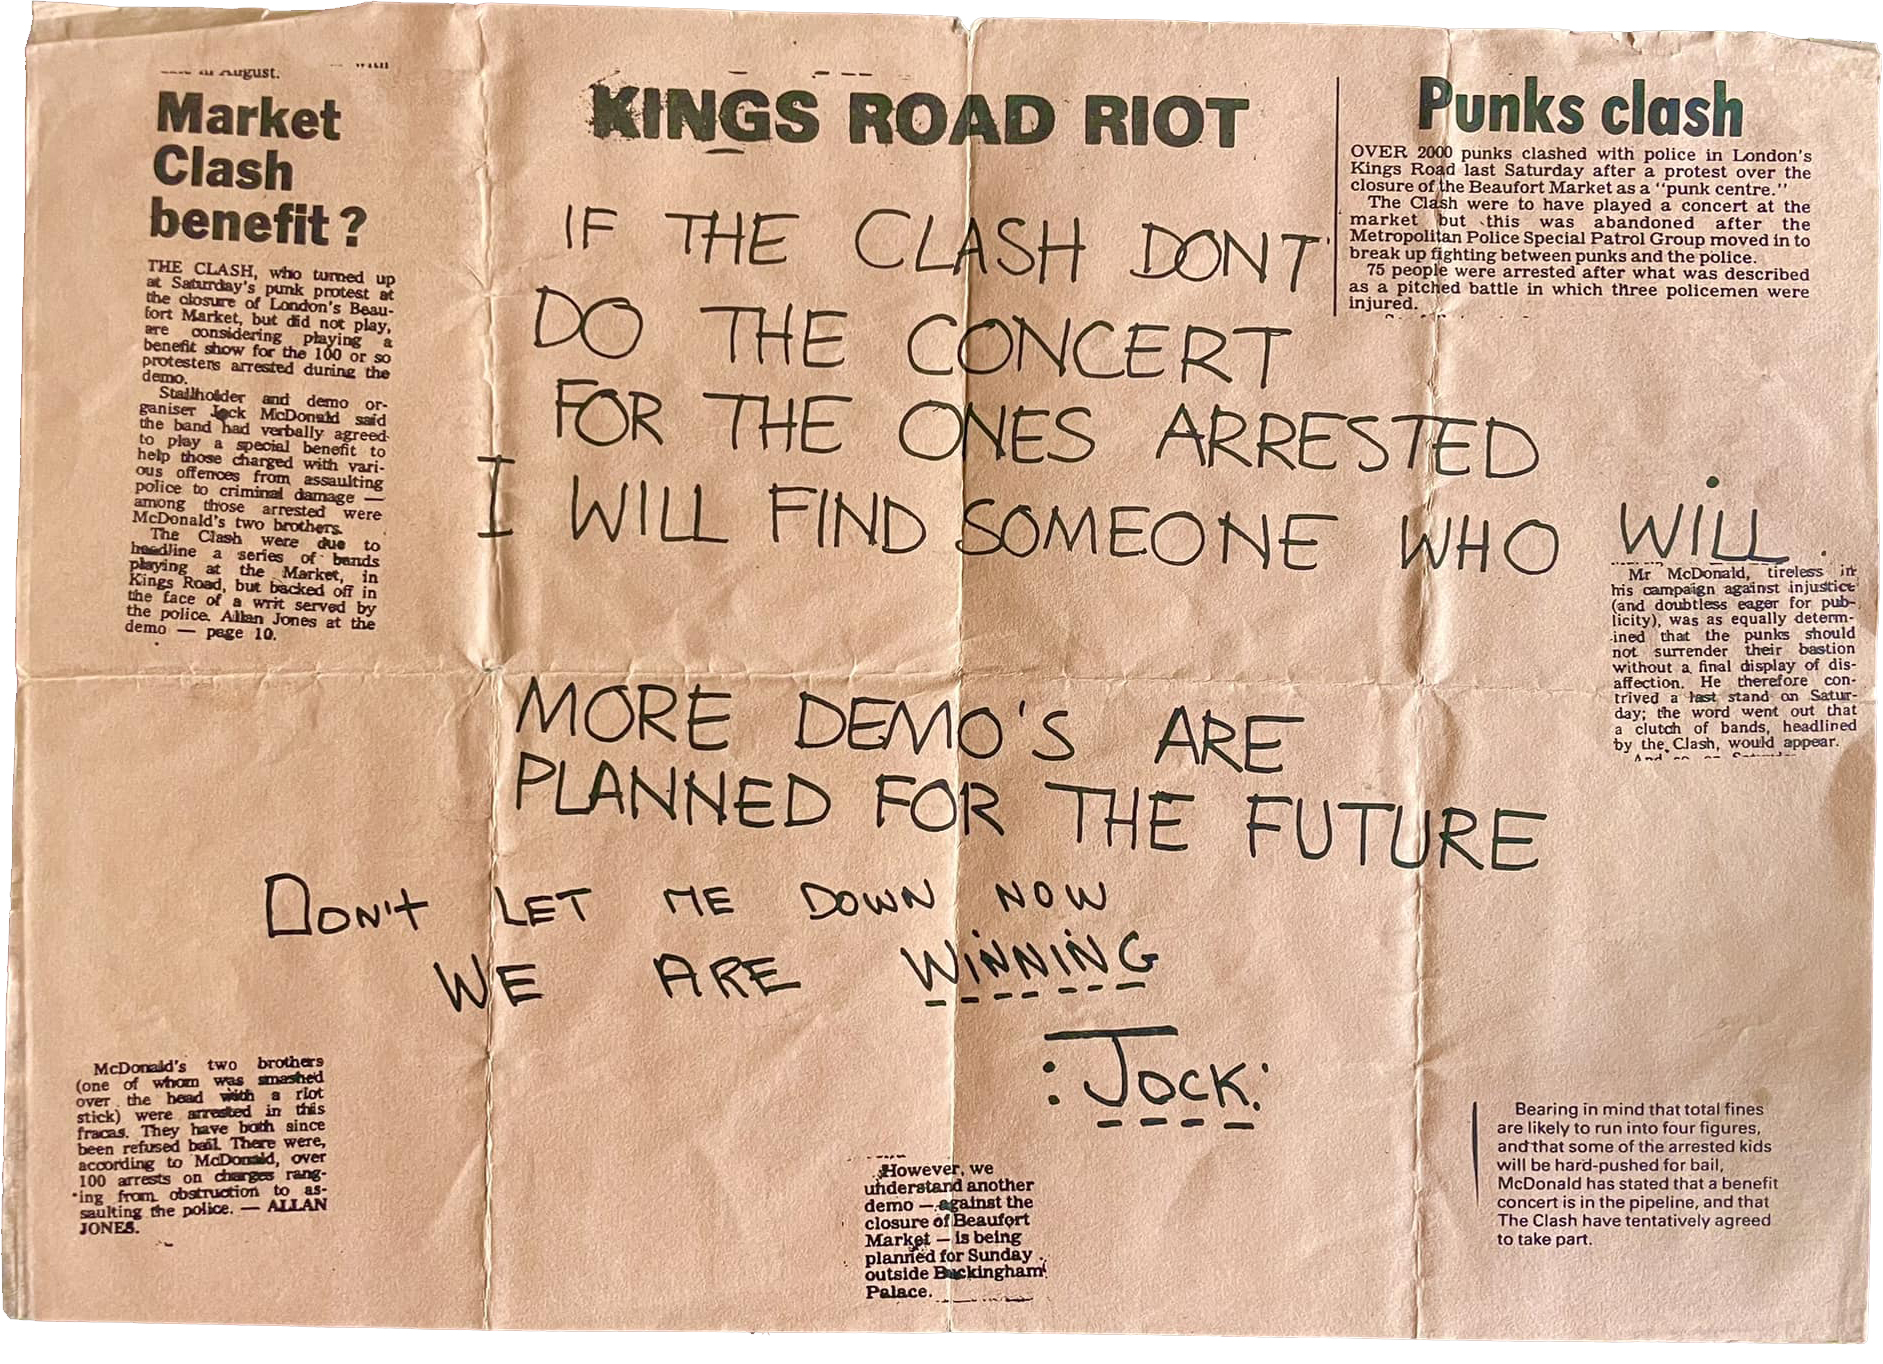 August.
Market
Clash
benefit?
THE CLASH, who turned up
at Saturday's punk protest at
the closure of London's Beau-
fort Market, but did not play,
are considering playing a
benefit show for the 100 or so
protesters arrested during the
demo.
Stallholder and demo or-
ganiser Jock McDonald said
the band had verbally agreed
to play a special benefit to
help those charged with vari-
ous offences from assaulting
police to criminal damage —
among those arrested were
McDonald's two brothers.
The Clash were due to
headline a series of bands
playing at the Market, in
Kings Road, but backed off in
the face of a writ served by
the police. Allan Jones at the
demo — page 10.
KINGS ROAD RIOT
IF THE CLASH DONT
DO THE CONCERT
FOR THE ONES ARRESTED
I WILL FIND SOMEONE WHO WILL.
MORE DEMO'S ARE
PLANNED FOR THE FUTURE
DON'T LET ME DOWN NOW
WE ARE WINNING
:JOCK:
Punks clash
OVER 2000 punks clashed with police in London's
Kings Road last Saturday after a protest over the
closure of the Beaufort Market as a "punk centre."
The Clash were to have played a concert at the
market but this was abandoned after the
Metropolitan Police Special Patrol Group moved in to
break up fighting between punks and the police.
75 people were arrested after what was described
as a pitched battle in which three policemen were
injured.
Mr McDonald, tireless in
his campaign against injustice
(and doubtless eager for pub-
licity), was as equally determ-
ined that the punks should
not surrender their bastion
without a final display of dis-
affection. He therefore con-
trived a last stand on Satur-
day; the word went out that
a clutch of bands, headlined
by the Clash, would appear.
McDonald's two brothers
(one of whom was smashed
over the head with a riot
stick) were arrested in this
fracas. They have both since
been refused bail. There were,
according to McDonald, over
100 arrests on charges rang-
ing from obstruction to as-
saulting the police. — ALLAN
JONES.
However, we
understand another
demo — against the
closure of Beaufort
Market — is being
planned for Sunday
outside Buckingham
Palace.
Bearing in mind that total fines
are likely to run into four figures,
and that some of the arrested kids
will be hard-pushed for bail,
McDonald has stated that a benefit
concert is in the pipeline, and that
The Clash have tentatively agreed
to take part.